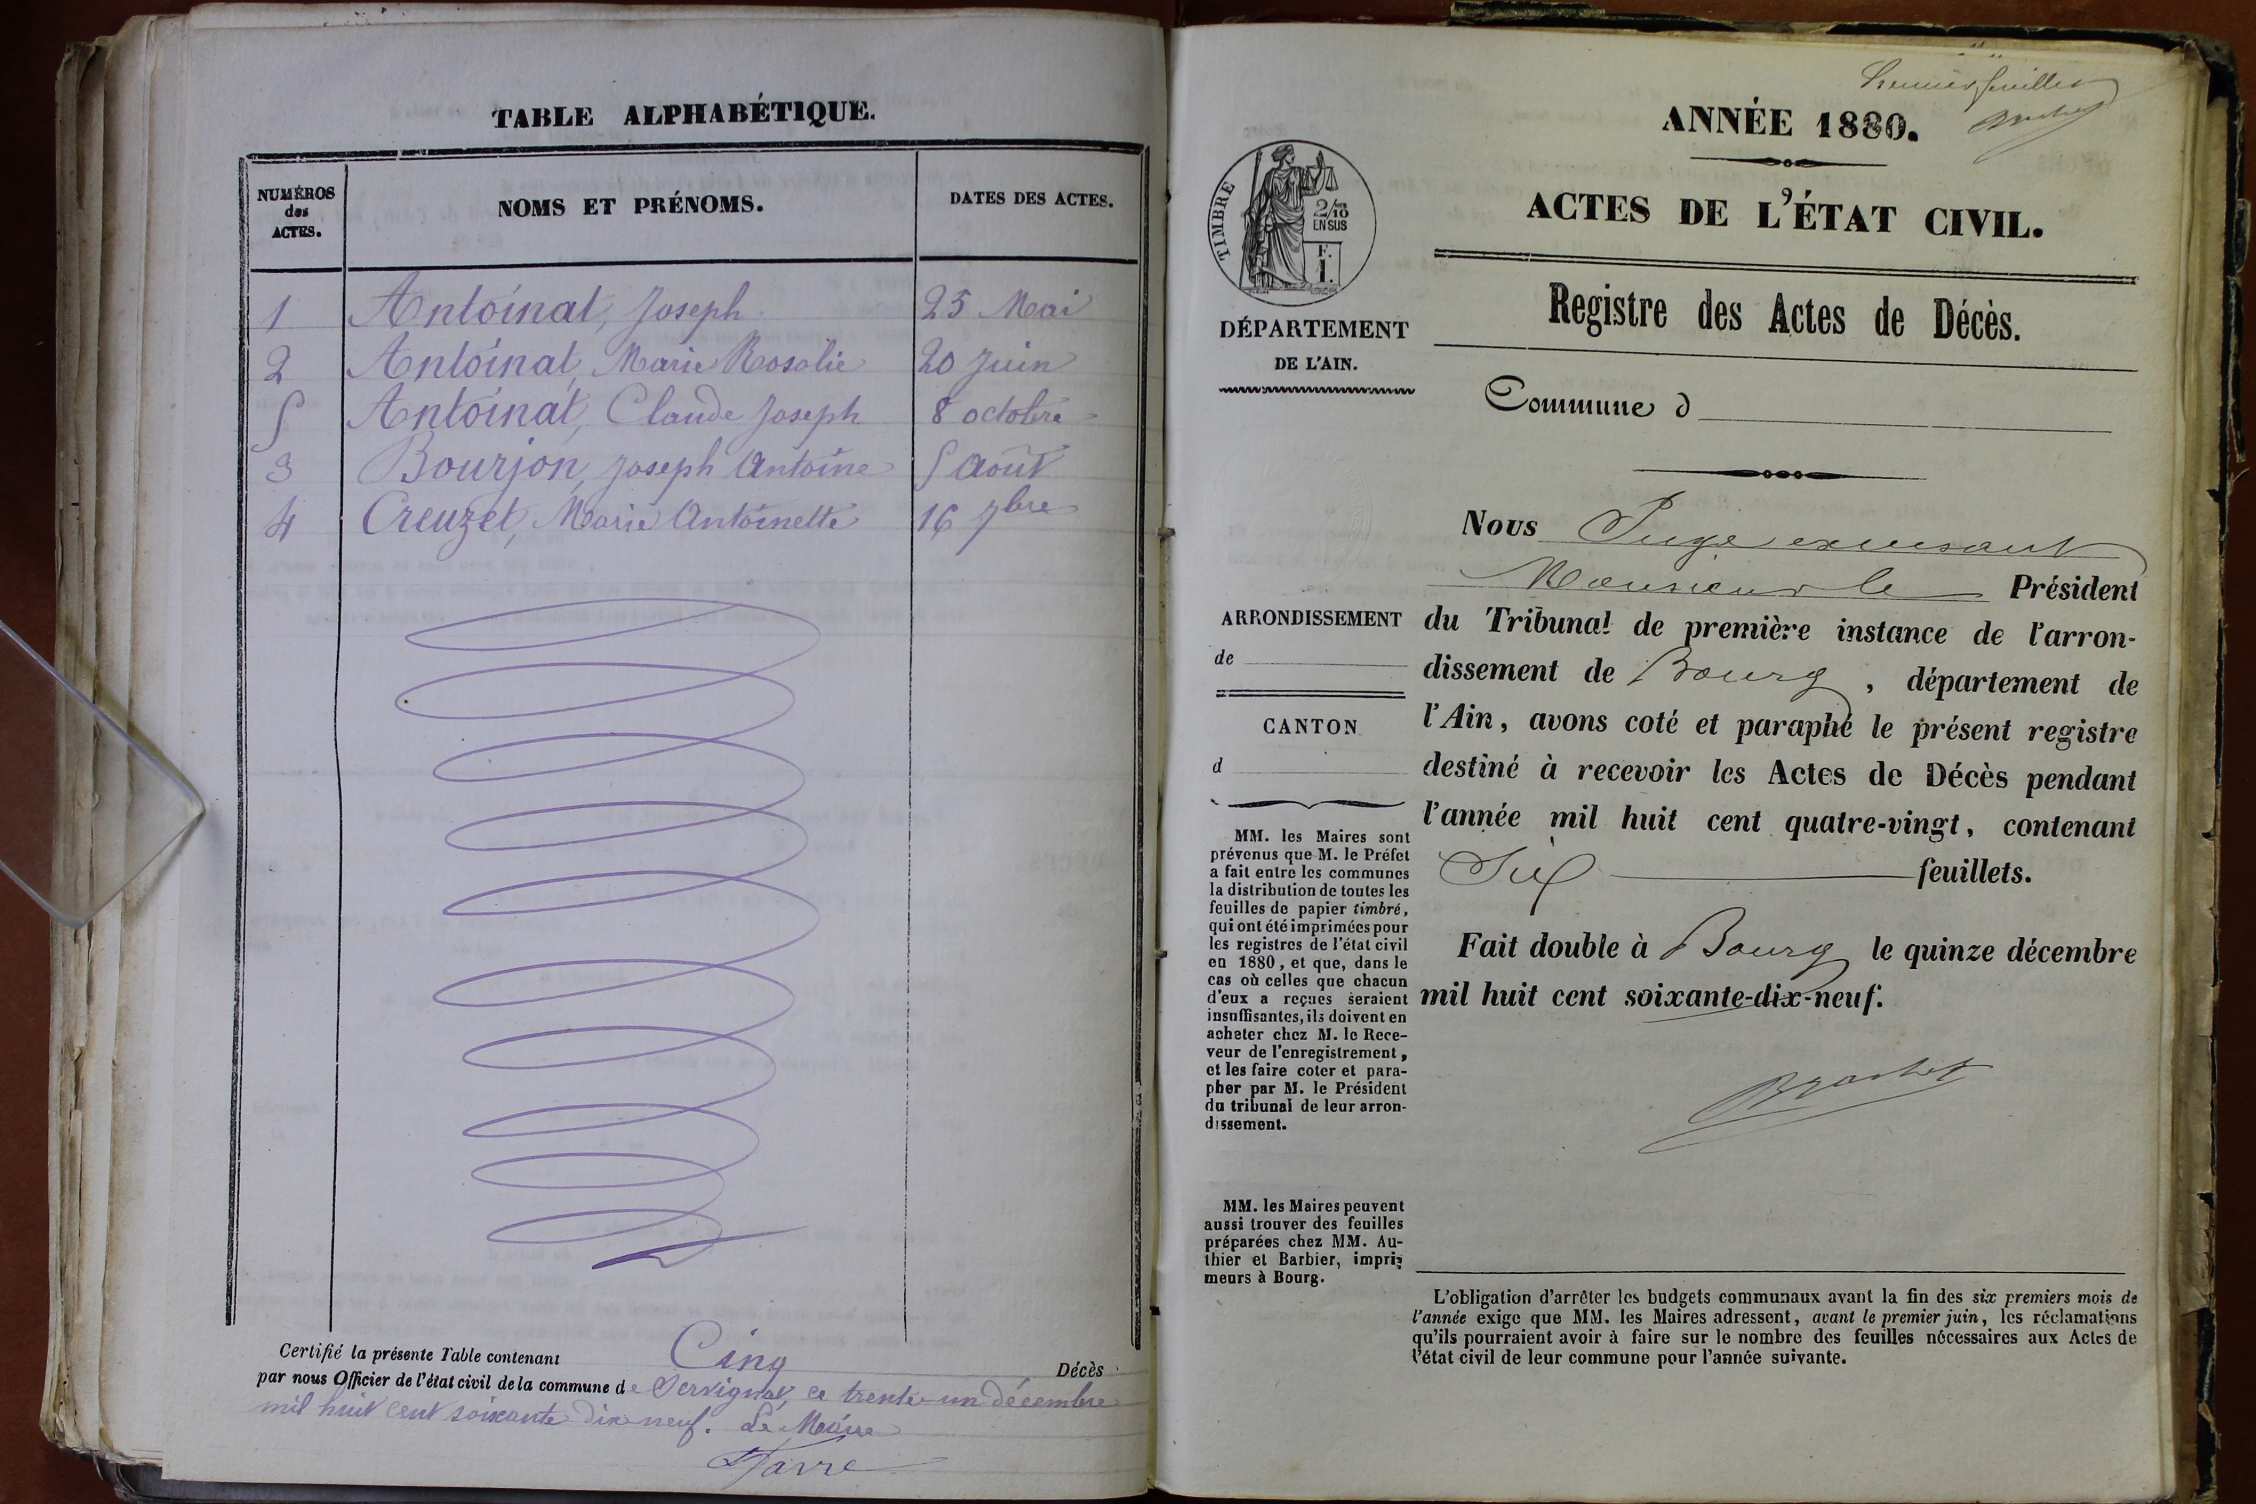 TABLE ALPHABÉTIQUE.
NUMÉROS des ACTES. NOMS ET PRÉNOMS. DATES DES ACTES.
1 Antoinat, Joseph 25 Mai
2 Antoinat, Marie Rosalie 20 Juin
5 Antoinat, Claude Joseph 8 octobre
3 Bourjon, Joseph Antoine 5 Août
4 Creuzet, Marie Antoinette 16 7bre
Certifié la présente Table contenant Cinq Décès
par nous Officier de l'état civil de la commune de Servignat, ce trente-un décembre
mil huit cent soixante dix neuf. Le Maire
Favre
Premier feuillet
Brachet
ANNÉE 1880.
ACTES DE L'ÉTAT CIVIL.
TIMBRE
2/10
EN SUS
F.
1.
DÉPARTEMENT
DE L'AIN.
Registre des Actes de Décès.
Commune d
Nous Juge exerçant
Monsieur le Président
du Tribunal de première instance de l'arron-
dissement de Bourg, département de
l'Ain, avons coté et paraphé le présent registre
destiné à recevoir les Actes de Décès pendant
l'année mil huit cent quatre-vingt, contenant
Six feuillets.
Fait double à Bourg le quinze décembre
mil huit cent soixante-dix-neuf.
Brachet
ARRONDISSEMENT
de
CANTON
d
MM. les Maires sont
prévenus que M. le Préfet
a fait entre les communes
la distribution de toutes les
feuilles de papier timbré,
qui ont été imprimées pour
les registres de l'état civil
en 1880, et que, dans le
cas où celles que chacun
d'eux a reçues seraient
insuffisantes, ils doivent en
acheter chez M. le Rece-
veur de l'enregistrement,
et les faire coter et para-
pher par M. le Président
du tribunal de leur arron-
dissement.
MM. les Maires peuvent
aussi trouver des feuilles
préparées chez MM. Au-
thier et Barbier, impri-
meurs à Bourg.
L'obligation d'arrêter les budgets communaux avant la fin des six premiers mois de
l'année exige que MM. les Maires adressent, avant le premier juin, les réclamations
qu'ils pourraient avoir à faire sur le nombre des feuilles nécessaires aux Actes de
l'état civil de leur commune pour l'année suivante.